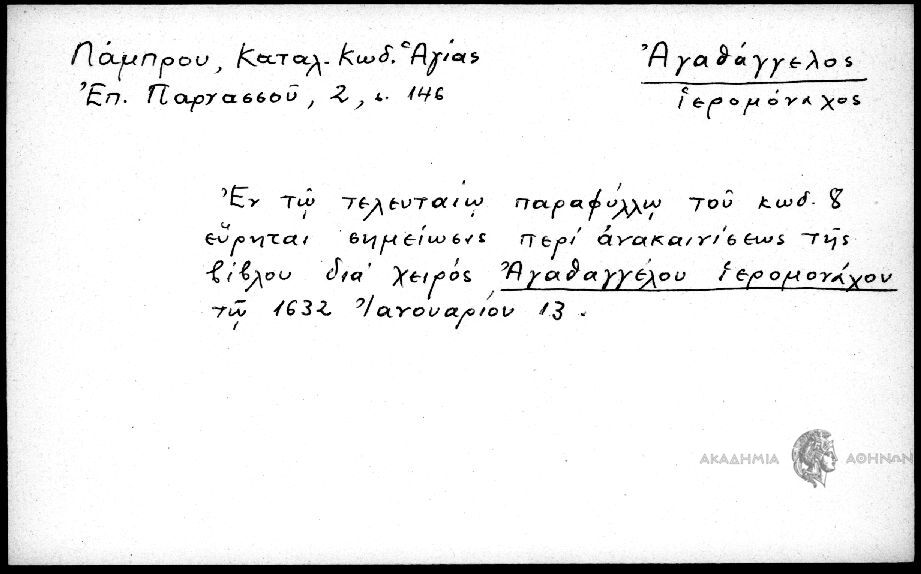 Λάμπρου, Καταλ. Κωδ. Ἁγίας
Ἐπ. Παρνασσοῦ, 2, σ. 146
Ἀγαθάγγελος
ἱερομόναχος
Ἐν τῷ τελευταίῳ παραφύλλῳ τοῦ κωδ. 8
εὕρηται σημείωσις περί ἀνακαινίσεως τῆς
βίβλου διά χειρός Ἀγαθαγγέλου ἱερομονάχου
τῷ 1632 Ἰανουαρίου 13.
ΑΚΑΔΗΜΙΑ ΑΘΗΝΩΝ